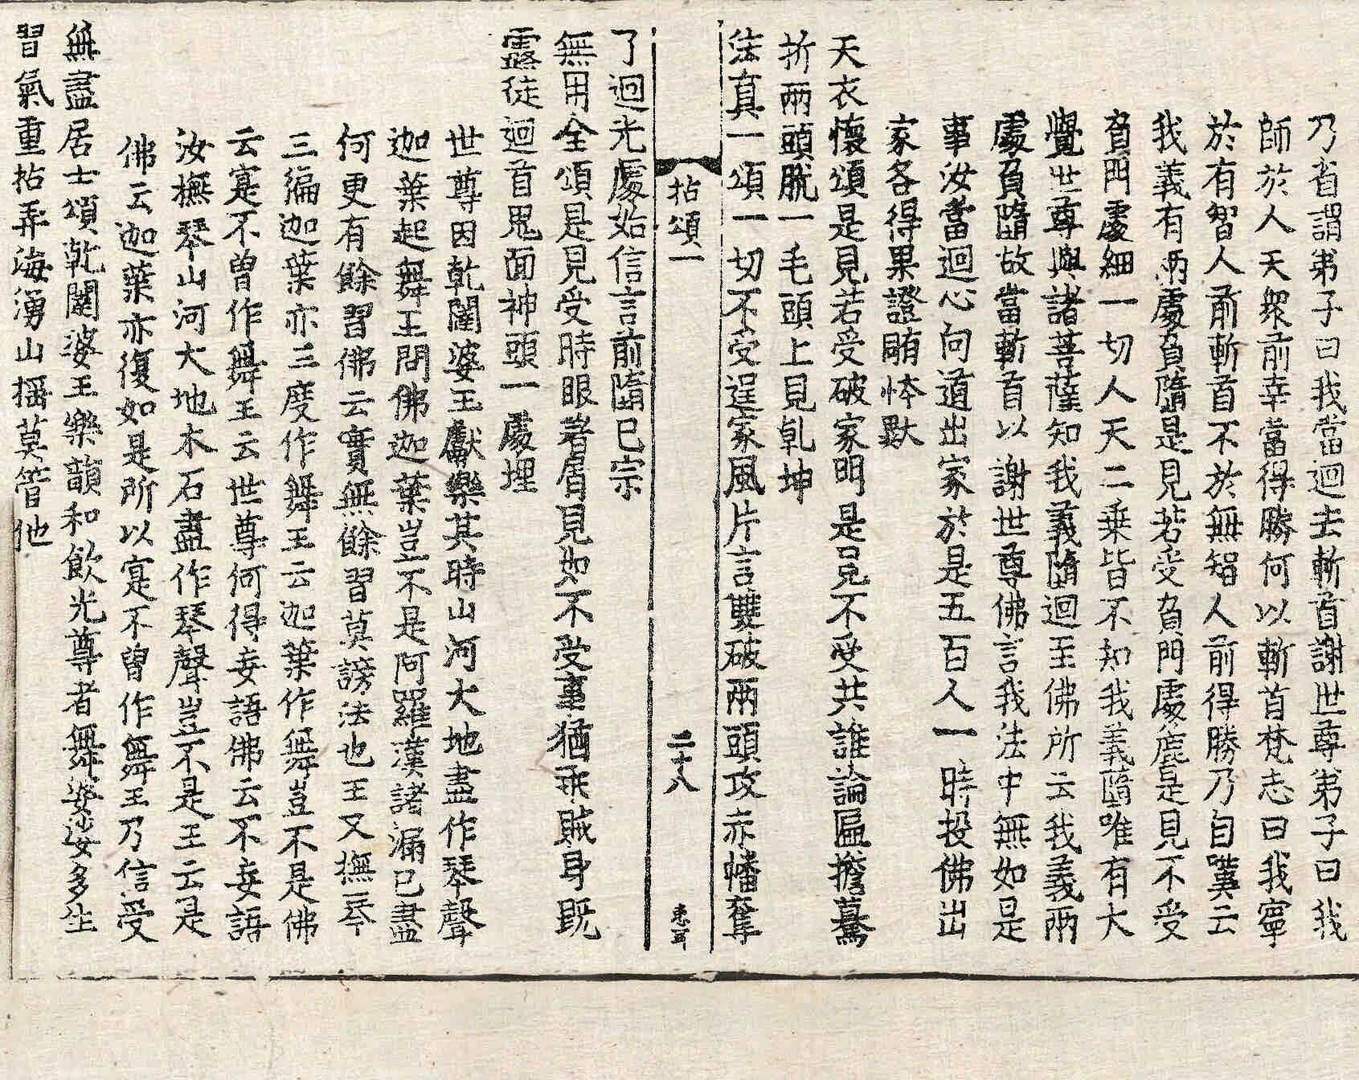 乃省謂弟子曰我當迴去斬首謝世尊弟子曰我
師於人天衆前幸當得勝何以斬首梵志曰我寧
於有智人前斬首不於無智人前得勝乃自嘆云
我義有兩處負墮是見若受負門處麁是見不受
負門處細一切人天二乘皆不知我義墮唯有大
覺世尊與諸菩薩知我義墮迴至佛所云我義兩
處負墮故當斬首以謝世尊佛言我法中無如是
事汝當迴心向道出家於是五百人一時投佛出
家各得果證
天衣懷頌是見若受破家明是見不受共誰論匾擔驀
折兩頭脫一毛頭上見乹坤
法真一頌一切不受逞家風片言雙破兩頭攻赤幡奪
拈頌一 二十八
了迴光處始信言前隨已宗
無用全頌是見受時眼著屑見如不受事猶乖賊身既
露徒迴首鬼面神頭一處埋
世尊因乾闥婆王獻樂其時山河大地盡作琴聲
迦葉起舞王問佛迦葉豈不是阿羅漢諸漏已盡
何更有餘習佛云實無餘習莫謗法也王又撫琴
三遍迦葉亦三度作舞王云迦葉作舞豈不是佛
云寔不曾作舞王云世尊何得妄語佛云不妄語
汝撫琴山河大地木石盡作琴聲豈不是王云是
佛云迦葉亦復如是所以寔不曾作舞王乃信受
無盡居士頌乾闥婆王樂韻和飲光尊者舞婆娑多生
習氣重拈弄海湧山搖莫管他